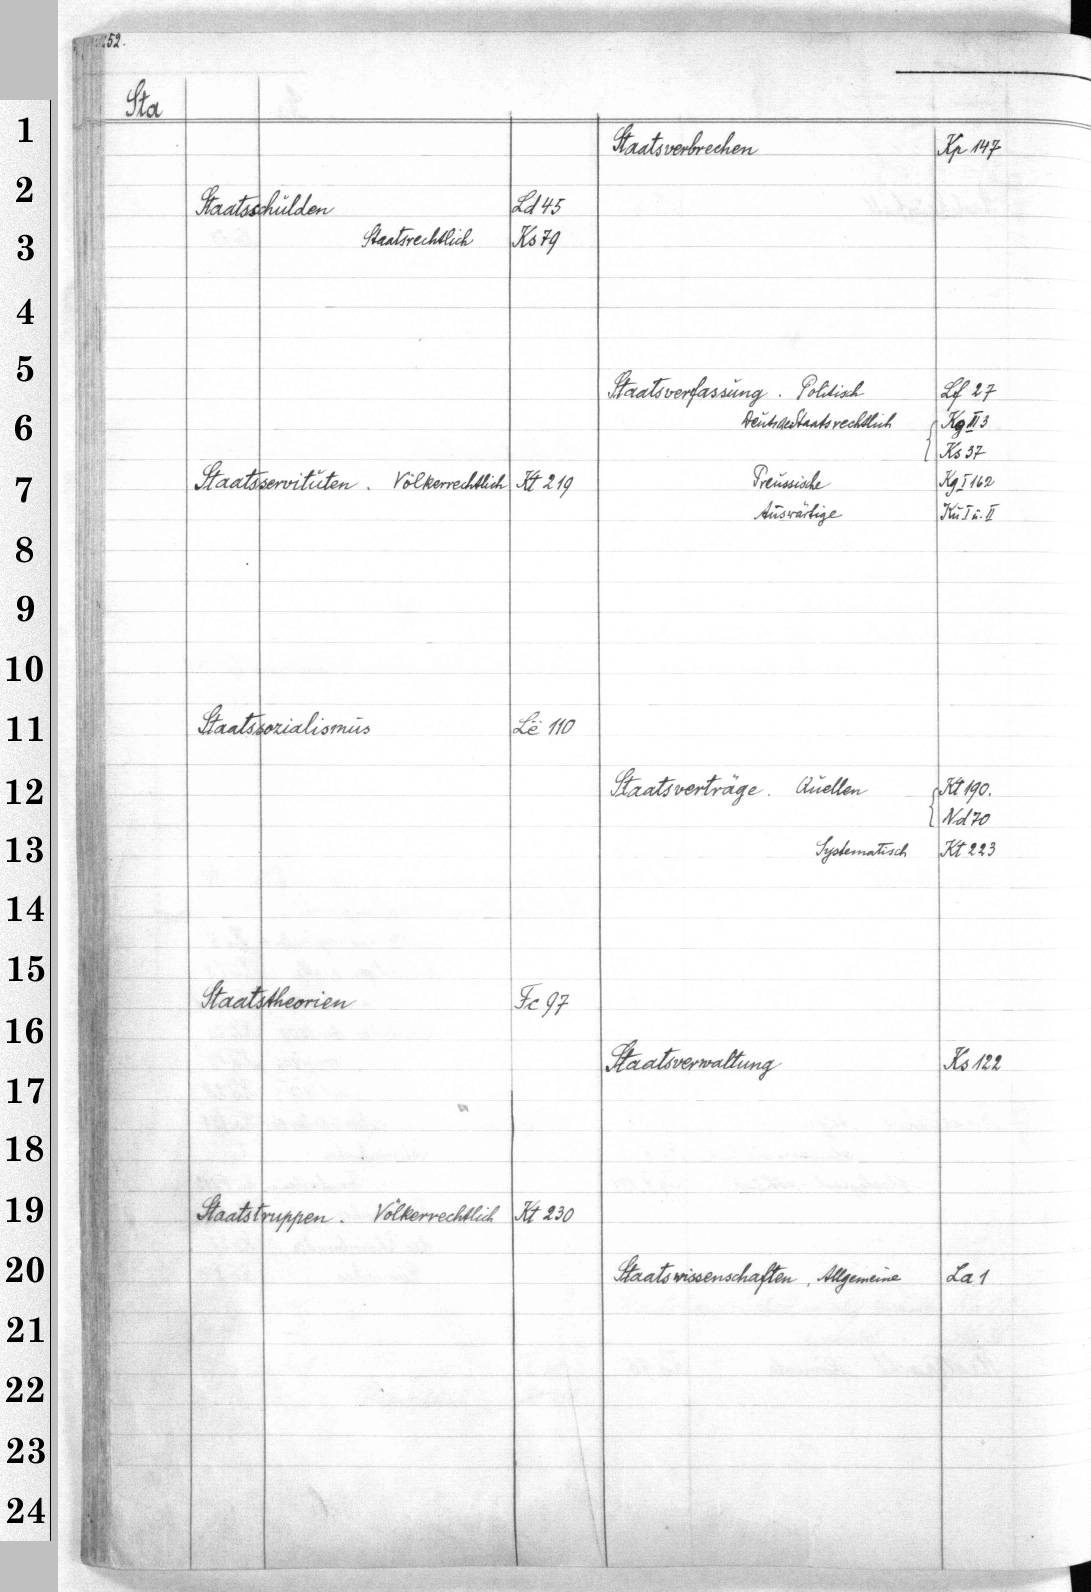 252.
Sta
1
2
3
4
5
6
7
8
9
10
11
12
13
14
15
16
17
18
19
20
21
22
23
24
Staatsschulden Ld 45
Staatsrechtlich Ks 79
Staatsservituten. Völkerrechtlich Kt 219
Staatssozialismus Le 110
Staatstheorien Fc 97
Staatstruppen. Völkerrechtlich Kt 230
Staatsverbrechen Kp 147
Staatsverfassung. Politisch Lf 27
Deutsche Staatsrechtlich Kg III 3
Ks 37
Preussische Kg I 162
Auswärtige Ku I u. II
Staatsverträge. Quellen Kt 190.
Nd 70
Systematisch Kt 223
Staatsverwaltung Ks 122
Staatswissenschaften, Allgemeine La 1